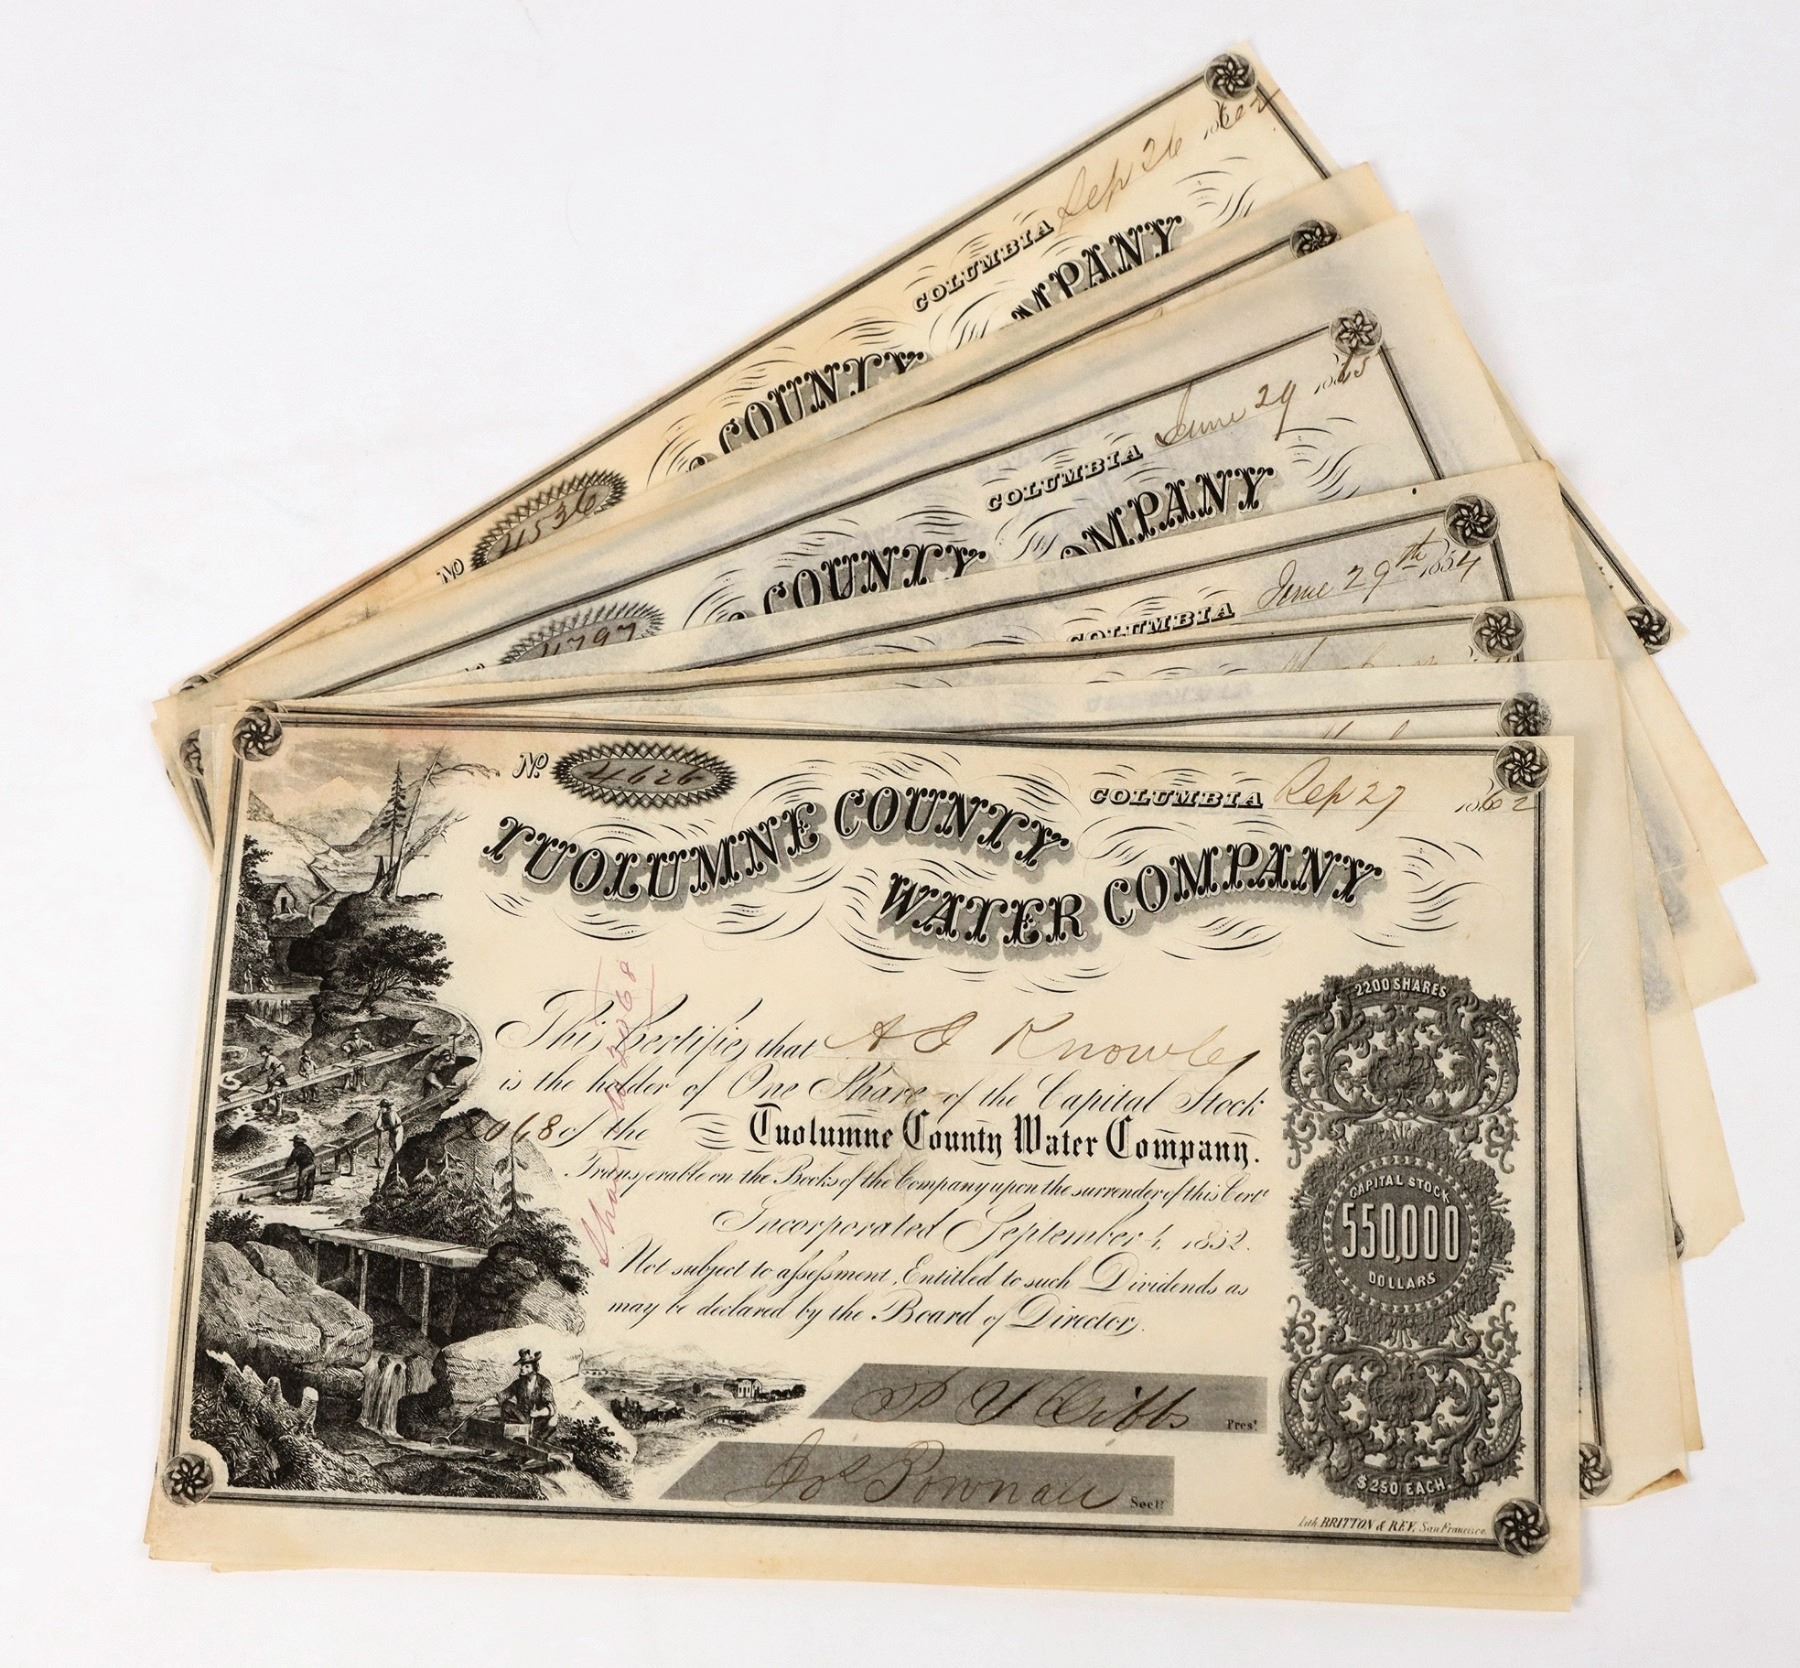 COLUMBIA Sep 26 1862
COUNTY COMPANY
No 4536
COLUMBIA June 29 1865
COUNTY COMPANY
4797
COLUMBIA June 29th 1854
No. 4626
COLUMBIA Sep 27 1862
TUOLUMNE COUNTY
WATER COMPANY
This Certifies that A E Knowles
is the holder of One Share of the Capital Stock
2068 of the Tuolumne County Water Company.
Transferable on the Books of the Company upon the surrender of this Certe
Incorporated September 4, 1852.
Not subject to assessment, Entitled to such Dividends as
may be declared by the Board of Directors.
Share No 2068
Gibbs Prest
Jos Pownall Secty
2200 SHARES
CAPITAL STOCK
550,000
DOLLARS
$250 EACH.
Lith. BRITTON & REY, San Francisco.